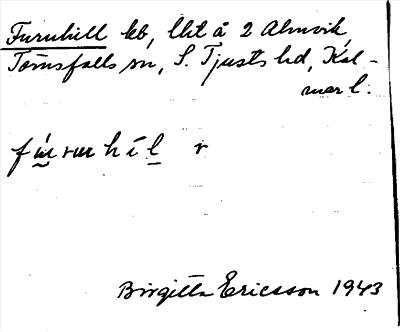 Furuhill kb, lht å 2 Almvik,
Törnsfalls sn, S. Tjusts hd, Kal-
mar l.
Birgitta Ericsson 1943